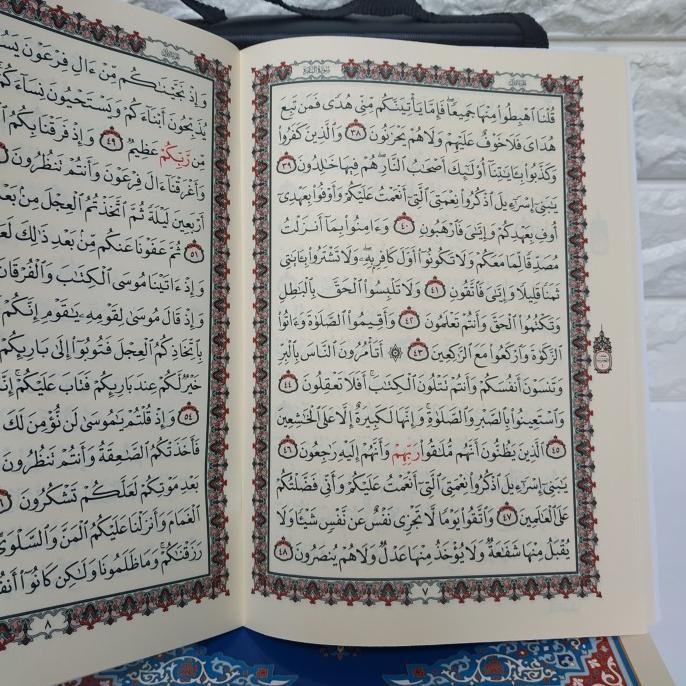 الجزء الأول
سورة البقرة
قُلْنَا ٱهْبِطُوا۟ مِنْهَا جَمِيعًا ۖ فَإِمَّا يَأْتِيَنَّكُم مِّنِّى هُدًى فَمَن تَبِعَ
هُدَاىَ فَلَا خَوْفٌ عَلَيْهِمْ وَلَا هُمْ يَحْزَنُونَ ٣٨ وَٱلَّذِينَ كَفَرُوا۟
وَكَذَّبُوا۟ بِـَٔايَٰتِنَآ أُو۟لَٰٓئِكَ أَصْحَٰبُ ٱلنَّارِ ۖ هُمْ فِيهَا خَٰلِدُونَ ٣٩
يَٰبَنِىٓ إِسْرَٰٓءِيلَ ٱذْكُرُوا۟ نِعْمَتِىَ ٱلَّتِىٓ أَنْعَمْتُ عَلَيْكُمْ وَأَوْفُوا۟ بِعَهْدِىٓ
أُوفِ بِعَهْدِكُمْ وَإِيَّٰىَ فَٱرْهَبُونِ ٤٠ وَءَامِنُوا۟ بِمَآ أَنزَلْتُ
مُصَدِّقًا لِّمَا مَعَكُمْ وَلَا تَكُونُوٓا۟ أَوَّلَ كَافِرٍۭ بِهِۦ ۖ وَلَا تَشْتَرُوا۟ بِـَٔايَٰتِى
ثَمَنًا قَلِيلًا وَإِيَّٰىَ فَٱتَّقُونِ ٤١ وَلَا تَلْبِسُوا۟ ٱلْحَقَّ بِٱلْبَٰطِلِ
وَتَكْتُمُوا۟ ٱلْحَقَّ وَأَنتُمْ تَعْلَمُونَ ٤٢ وَأَقِيمُوا۟ ٱلصَّلَوٰةَ وَءَاتُوا۟
ٱلزَّكَوٰةَ وَٱرْكَعُوا۟ مَعَ ٱلرَّٰكِعِينَ ٤٣ ۞ أَتَأْمُرُونَ ٱلنَّاسَ بِٱلْبِرِّ
وَتَنسَوْنَ أَنفُسَكُمْ وَأَنتُمْ تَتْلُونَ ٱلْكِتَٰبَ ۚ أَفَلَا تَعْقِلُونَ ٤٤
وَٱسْتَعِينُوا۟ بِٱلصَّبْرِ وَٱلصَّلَوٰةِ ۚ وَإِنَّهَا لَكَبِيرَةٌ إِلَّا عَلَى ٱلْخَٰشِعِينَ
٤٥ ٱلَّذِينَ يَظُنُّونَ أَنَّهُم مُّلَٰقُوا۟ رَبِّهِمْ وَأَنَّهُمْ إِلَيْهِ رَٰجِعُونَ ٤٦
يَٰبَنِىٓ إِسْرَٰٓءِيلَ ٱذْكُرُوا۟ نِعْمَتِىَ ٱلَّتِىٓ أَنْعَمْتُ عَلَيْكُمْ وَأَنِّى فَضَّلْتُكُمْ
عَلَى ٱلْعَٰلَمِينَ ٤٧ وَٱتَّقُوا۟ يَوْمًا لَّا تَجْزِى نَفْسٌ عَن نَّفْسٍ شَيْـًٔا وَلَا
يُقْبَلُ مِنْهَا شَفَٰعَةٌ وَلَا يُؤْخَذُ مِنْهَا عَدْلٌ وَلَا هُمْ يُنصَرُونَ ٤٨
٧
وَإِذْ نَجَّيْنَٰكُم مِّنْ ءَالِ فِرْعَوْنَ
يُذَبِّحُونَ أَبْنَآءَكُمْ وَيَسْتَحْيُونَ نِسَآءَكُمْ
مِّن رَّبِّكُمْ عَظِيمٌ ٤٩ وَإِذْ فَرَقْنَا بِكُمُ
وَأَغْرَقْنَآ ءَالَ فِرْعَوْنَ وَأَنتُمْ تَنظُرُونَ
أَرْبَعِينَ لَيْلَةً ثُمَّ ٱتَّخَذْتُمُ ٱلْعِجْلَ مِنۢ
٥١ ثُمَّ عَفَوْنَا عَنكُم مِّنۢ بَعْدِ ذَٰلِكَ
وَإِذْ ءَاتَيْنَا مُوسَى ٱلْكِتَٰبَ وَٱلْفُرْقَانَ
وَإِذْ قَالَ مُوسَىٰ لِقَوْمِهِۦ يَٰقَوْمِ إِنَّكُمْ
بِٱتِّخَاذِكُمُ ٱلْعِجْلَ فَتُوبُوٓا۟ إِلَىٰ بَارِئِكُمْ
خَيْرٌ لَّكُمْ عِندَ بَارِئِكُمْ فَتَابَ عَلَيْكُمْ ۚ
٥٤ وَإِذْ قُلْتُمْ يَٰمُوسَىٰ لَن نُّؤْمِنَ لَكَ
فَأَخَذَتْكُمُ ٱلصَّٰعِقَةُ وَأَنتُمْ تَنظُرُونَ
بَعْدِ مَوْتِكُمْ لَعَلَّكُمْ تَشْكُرُونَ
ٱلْغَمَامَ وَأَنزَلْنَا عَلَيْكُمُ ٱلْمَنَّ وَٱلسَّلْوَىٰ
رَزَقْنَٰكُمْ ۖ وَمَا ظَلَمُونَا وَلَٰكِن كَانُوٓا۟
٨